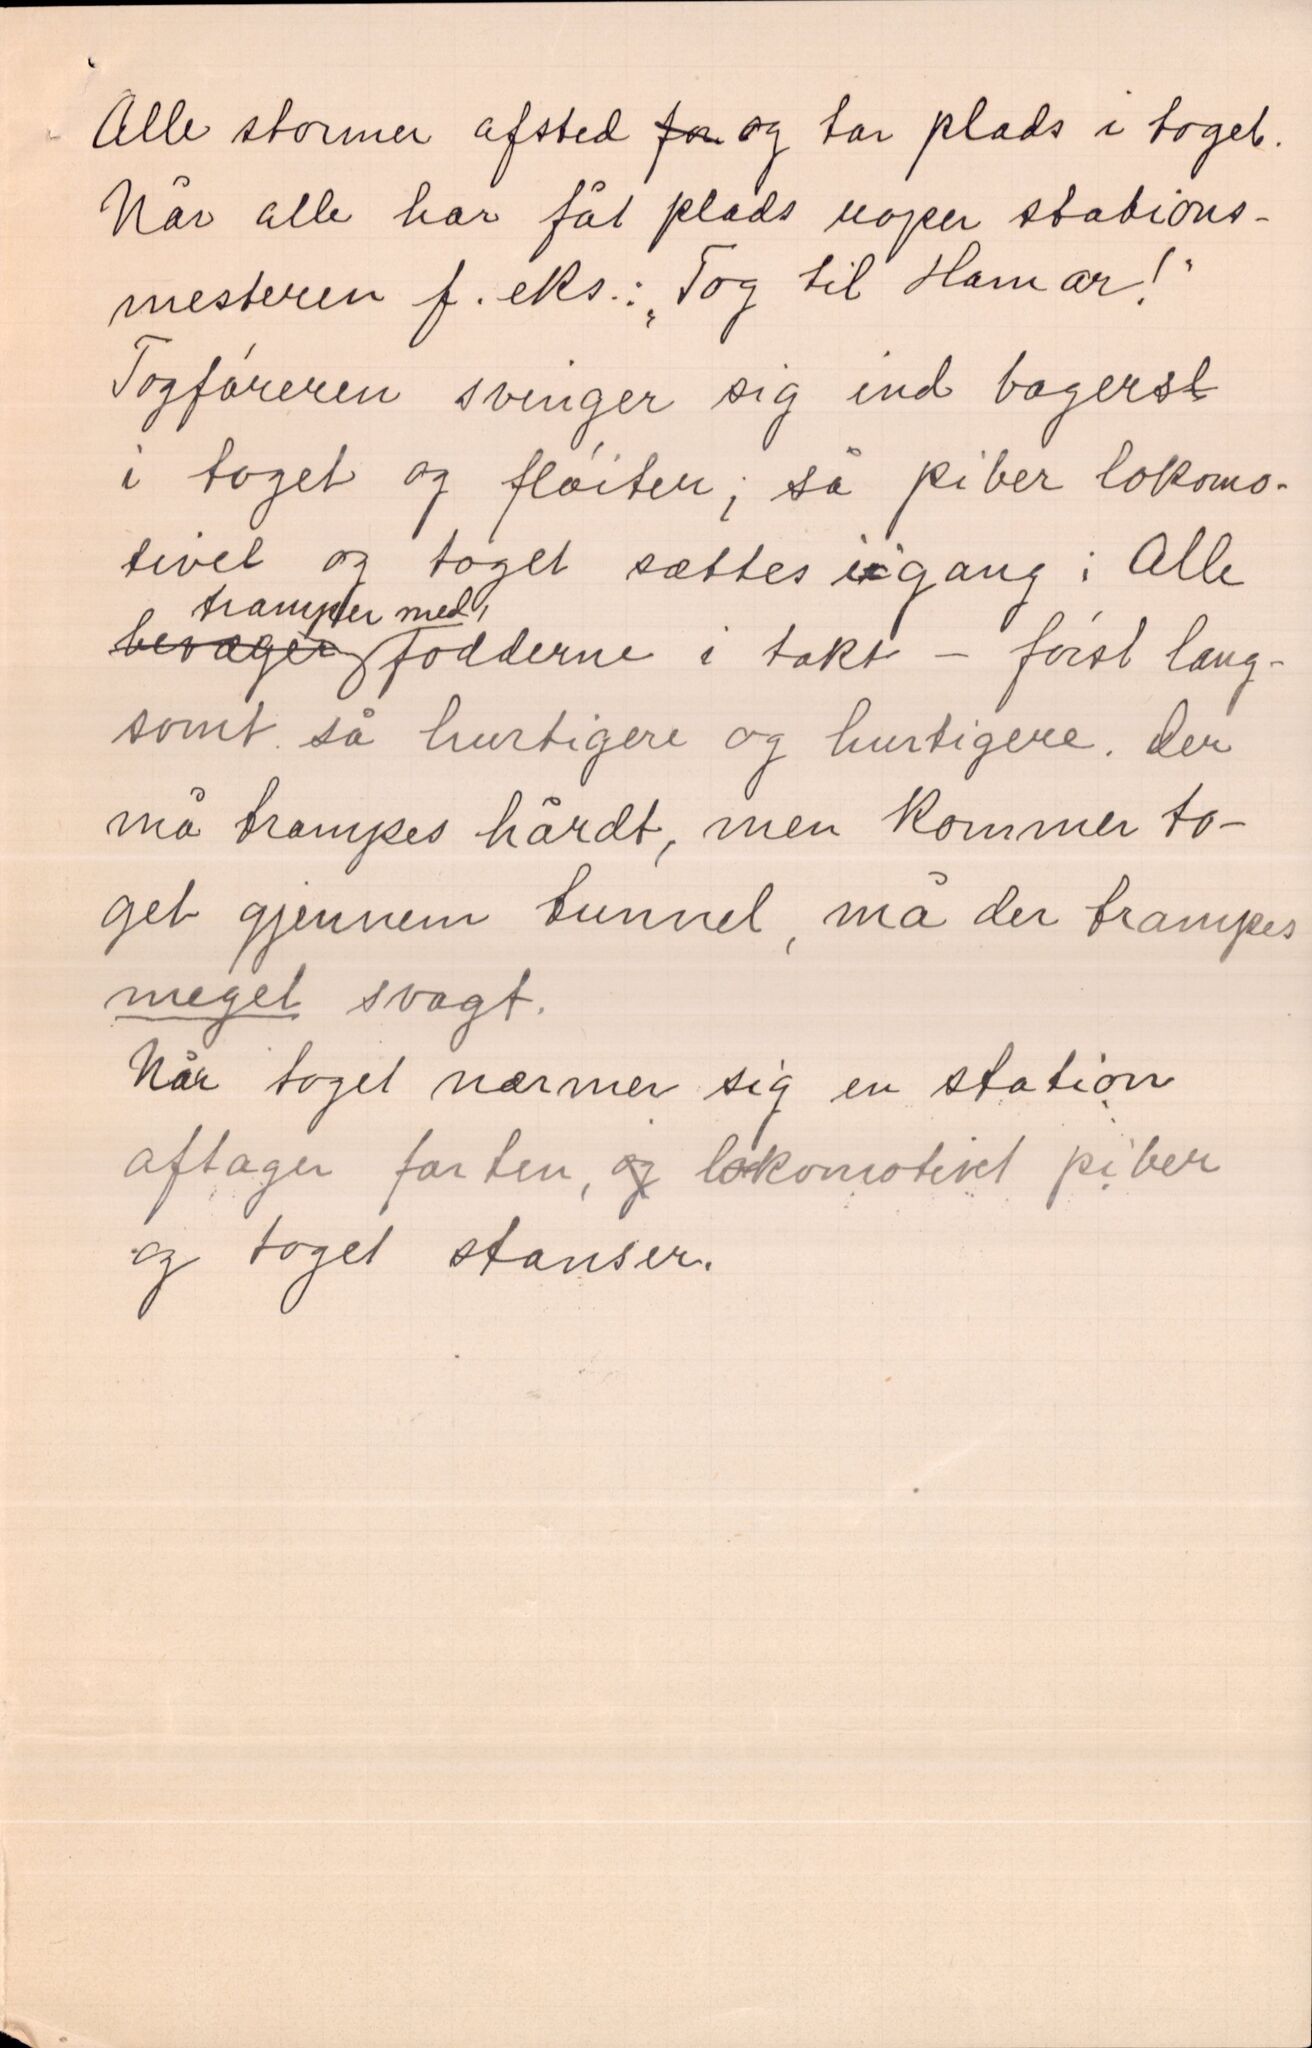 Alle stormer afsted for og tar plads i toget.
Når alle har fåt plads roper stations-
mesteren f. eks.: „Tog til Hamar!“
Togføreren svinger sig ind bagerst
i toget og fløiter; så piber lokomo-
tivet og toget sættes igang; Alle
tramper med
bevæger fødderne i takt – først lang-
somt så hurtigere og hurtigere. Der
må trampes hårdt, men kommer to-
get gjennem tunnel, må der trampes
meget svagt.
Når toget nærmer sig en station
aftager farten, og lokomotivet piber
og toget stanser.